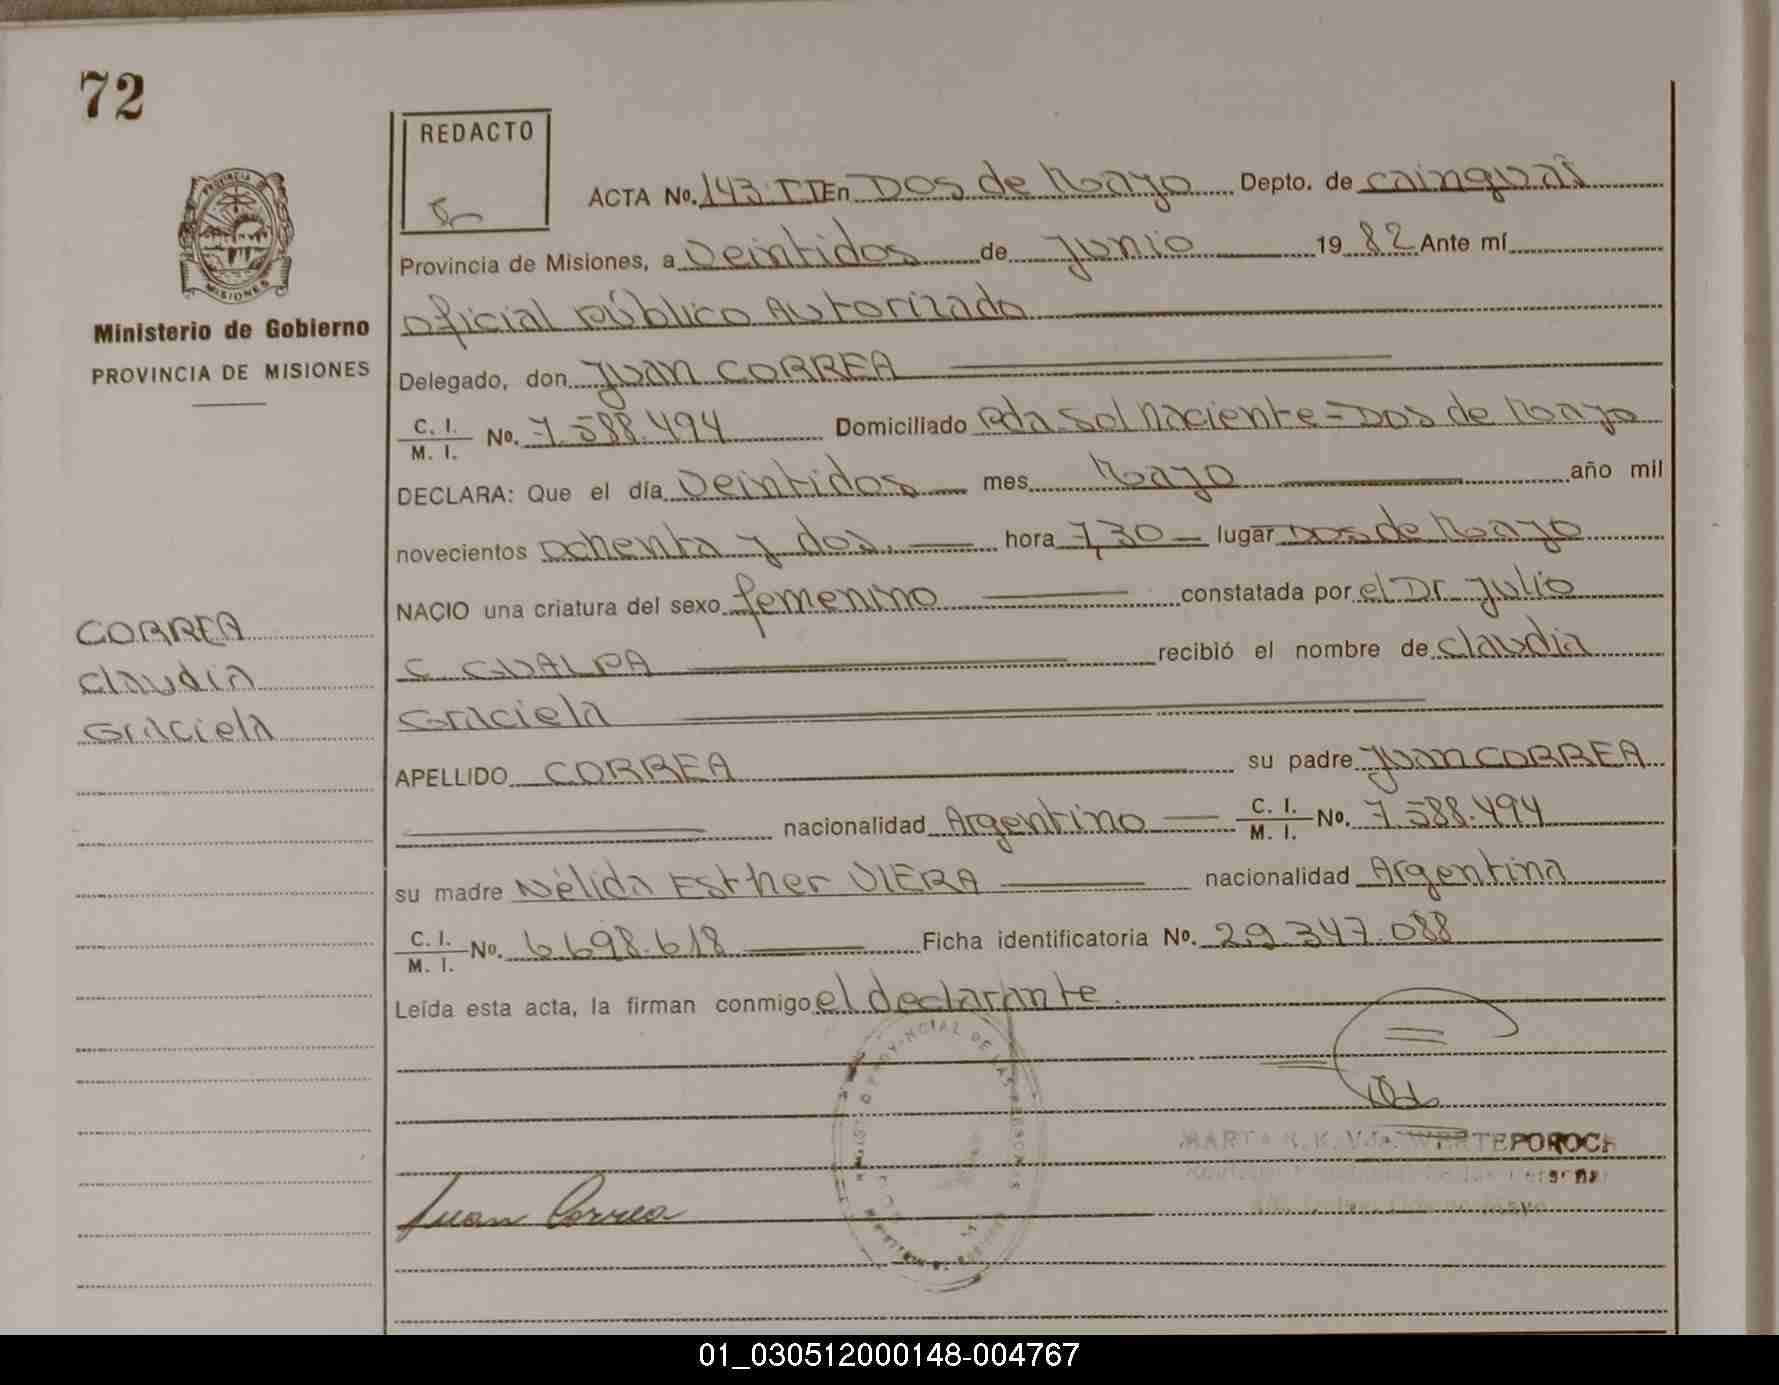 72
REDACTO
PROVINCIA DE
MISIONES
Ministerio de Gobierno
PROVINCIA DE MISIONES
CORREA
Claudia
Graciela
ACTA No. 143. TI En DOS de Mayo Depto. de cainguás
Provincia de Misiones, a veintidos de junio 1982 Ante mí
oficial Público Autorizado
Delegado, don Juan CORREA
C. I. / M. I. No. 7.588.494 Domiciliado Pda. Sol Naciente = Dos de Mayo
DECLARA: Que el día veintidos mes Mayo año mil
novecientos ochenta y dos. hora 7,30 lugar DOS de Mayo
NACIO una criatura del sexo femenino constatada por el Dr. Julio
C. GUALPA recibió el nombre de Claudia
Graciela
APELLIDO CORREA su padre Juan CORREA
nacionalidad Argentino C. I. / M. I. No. 7.588.494
su madre Nélida Esther VIERA nacionalidad Argentina
C. I. / M. I. No. 6.698.618 Ficha identificatoria No. 29.347.088
Leída esta acta, la firman conmigo el declarante.
PROVINCIAL DE LAS PERSONAS
MARTA K. Vda. WESTEPOROCH
Juan Correa
01_030512000148-004767